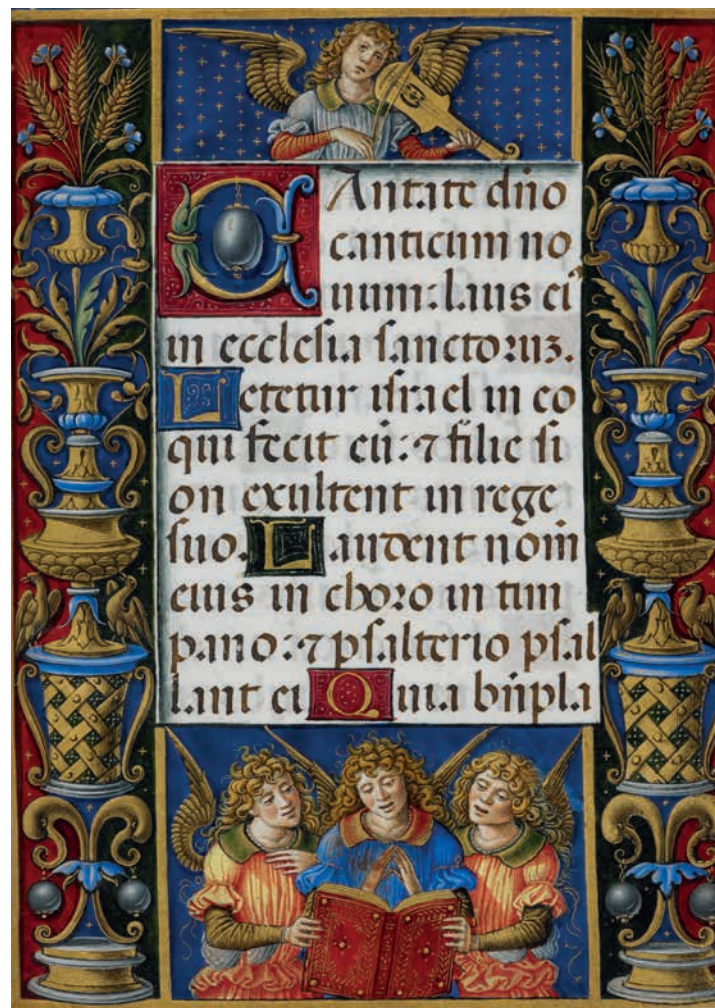 CAntate dño
canticum no
uum: laus ei'
in ecclesia sanctoruz.
Letetur israel in eo
qui fecit eū: ⁊ filie si
on exultent in rege
suo. Laudent nom̄
eius in choro in tim
pano: ⁊ psalterio psal
lant ei Quia bn̄pla